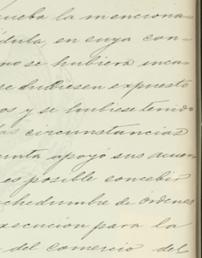 ueba la menciona
édula, en cuya con-
no se hubiera inca-
se hubiesen expuesto
os y se hubiese tenido
las circunstancias
unta apoyó sus acuer
es posible concebir
chedumbre de órdenes
xecucion para la
del comercio del